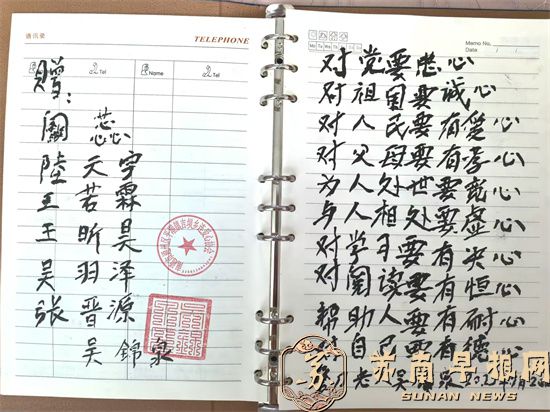 通讯录
TELEPHONE
Tel
Name
Tel
赠:
阚蕊
陸天宇
王若霖
王昕昊
吴羽泽
张晋源
吴錦泉
Memo No.
Mo Tu We Th Fr Sa Su
Date
对党要忠心
对祖国要诚心
对人民要有爱心
对父母要有孝心
为人处世要宽心
与人相处要虚心
对学习要有决心
对阅读要有恒心
帮助人要有耐心
对自己要有德心
老人吴锦泉
苏南早报网
SUNAN NEWS